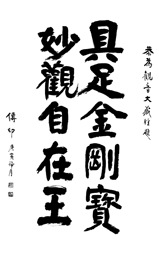 恭為觀音大藏經題
具足金剛寶
妙觀自在王
傳印